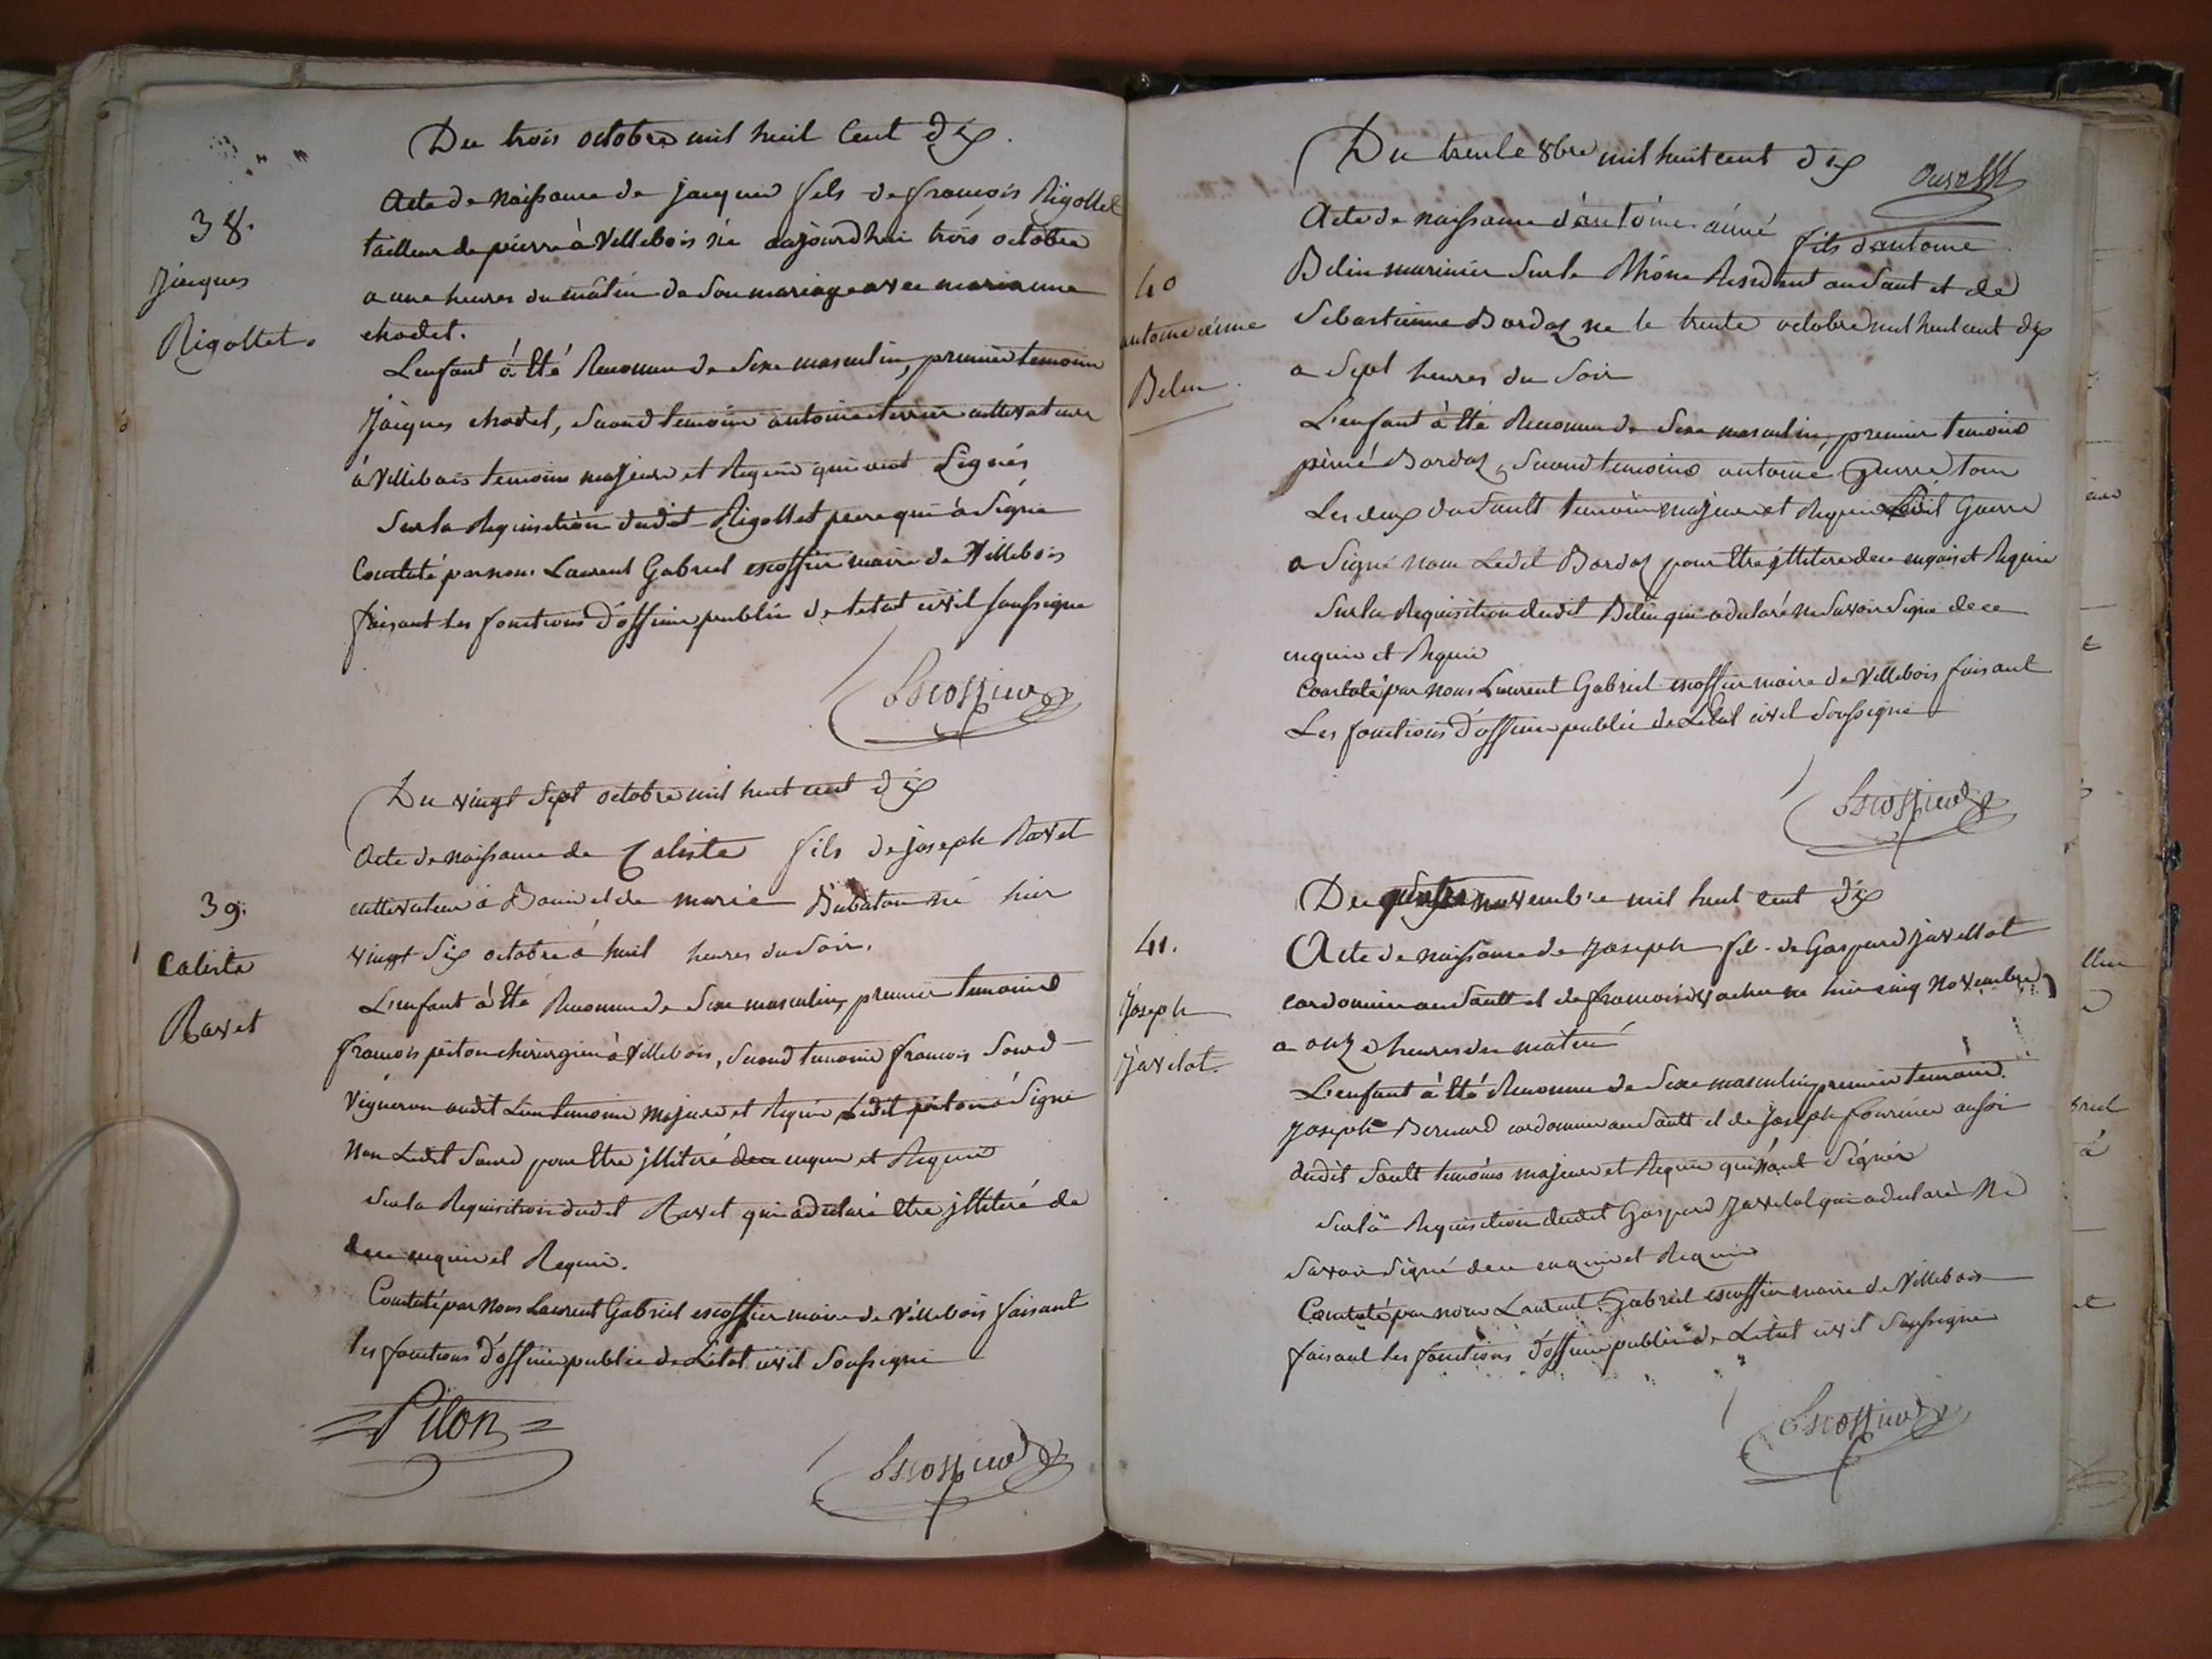 Du trois octobre mil huit Cent dix.
38.
Jacques
Rigollet.
Acte de Naissance de jacques fils de françois Rigollet
tailleur de pierre à Villebois né aujourdhui trois octobre
a une heures du mâtin de son mariage avec marianne
chodet.
L'enfant à été Reconnu de Sexe masculin, premier temoin
Jacques chodet, Second temoin antoine terrier cultivateur
à Villebois temoins majeurs et Requis qui ont Signés
Sur la Requisition dudit Rigollet pere qui à Signé
Constaté par nous Laurent Gabriel escoffier maire de Villebois
faisant les fonctions d'officier public de letat civil soussigné
Escoffier
Du vingt Sept octobre mil huit cent dix
39.
Caliste
Ravet
Acte de naissance de Caliste fils de joseph Ravet
cultivateur à Bouis et de marie Dubaton né hier
vingt Six octobre à huit heures du Soir.
L'enfant à été Reconnu de Sexe masculin, premier temoin
françois piton chirurgien à Villebois, Second temoin francois Sourd
Vigneron audit Lieu temoins Majeurs et Requis Ledit piton à Signé
Non Ledit Sourd pour être jlliteré de ce enquis et Requis
Sur la Requisition dudit Ravet qui à declaré être jlliteré de
de ce enquis et Requis.
Constaté par Nous Laurent Gabriel escoffier maire de Villebois faisant
les fonctions d'officier public de Létat civil Soussigné
Piton
Escoffier
Du trente 8bre mil huit cent dix
40
antoine aimé
Belin
Acte de naissance d'antoine aimé fils dantoine
Belin marinier Sur le Rhône Resident au Saut et de
Sebastienne Bordaz né le trente octobre mil huit cent dix
a Sept heures du Soir
L'enfant à été Reconnu de Sexe masculin, premier temoins
pierre Bordaz, Second temoins antoine Guerre tous
Les deux du Sault temoins majeurs et Requis Ledit Guerre
a Signé non Ledit Bordaz pour être jlliteré de ce enquis et Requis
Sur la Requisition dudit Belin qui a declaré ne Savoir Signé de ce
enquis et Requis
Constaté par Nous Laurent Gabriel escoffier maire de Villebois faisant
Les fonctions d'officier public de Létat civil Soussigné
Escoffier
Du novembre mil huit Cent dix
41.
Joseph
Javelot.
Acte de naissance de Joseph fils de Gaspard Javellot
cordonnier au Sault et de francoise vacher né hier cinq Novembre
a onze heures du matin
L'enfant à été Reconnu de Sexe masculin, premier temoin
Joseph Bernard cordonnier au Sault et de Joseph fournier aussi
dudit Sault temoins majeurs et Requis qui n'ont Signés
Sur la Requisition dudit Gaspard Javelot qui a declaré Ne
Savoir Signé de ce enquis et Requis
Constaté par nous Laurent Gabriel escoffier maire de Villebois
faisant les fonctions d'officier public de Létat civil Soussigné
Escoffier